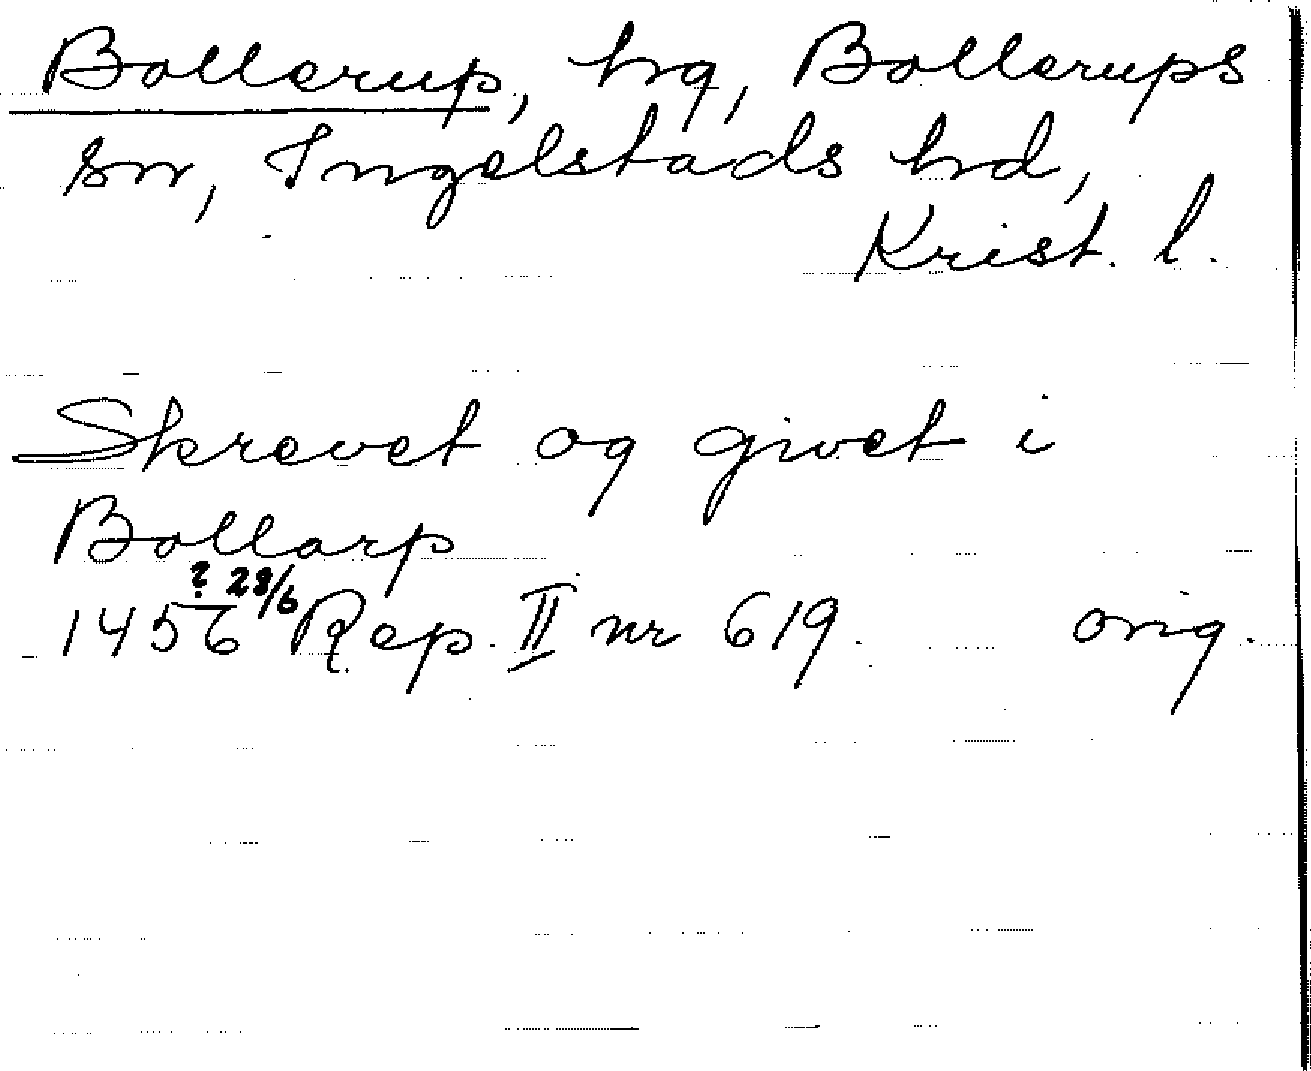 Bollerup, hg, Bollerups
sn, Ingelstads hd,
Krist. l.
Skrevet og givet i
Bollarp
? 28/6
1456 Rep. II nr 619. orig.